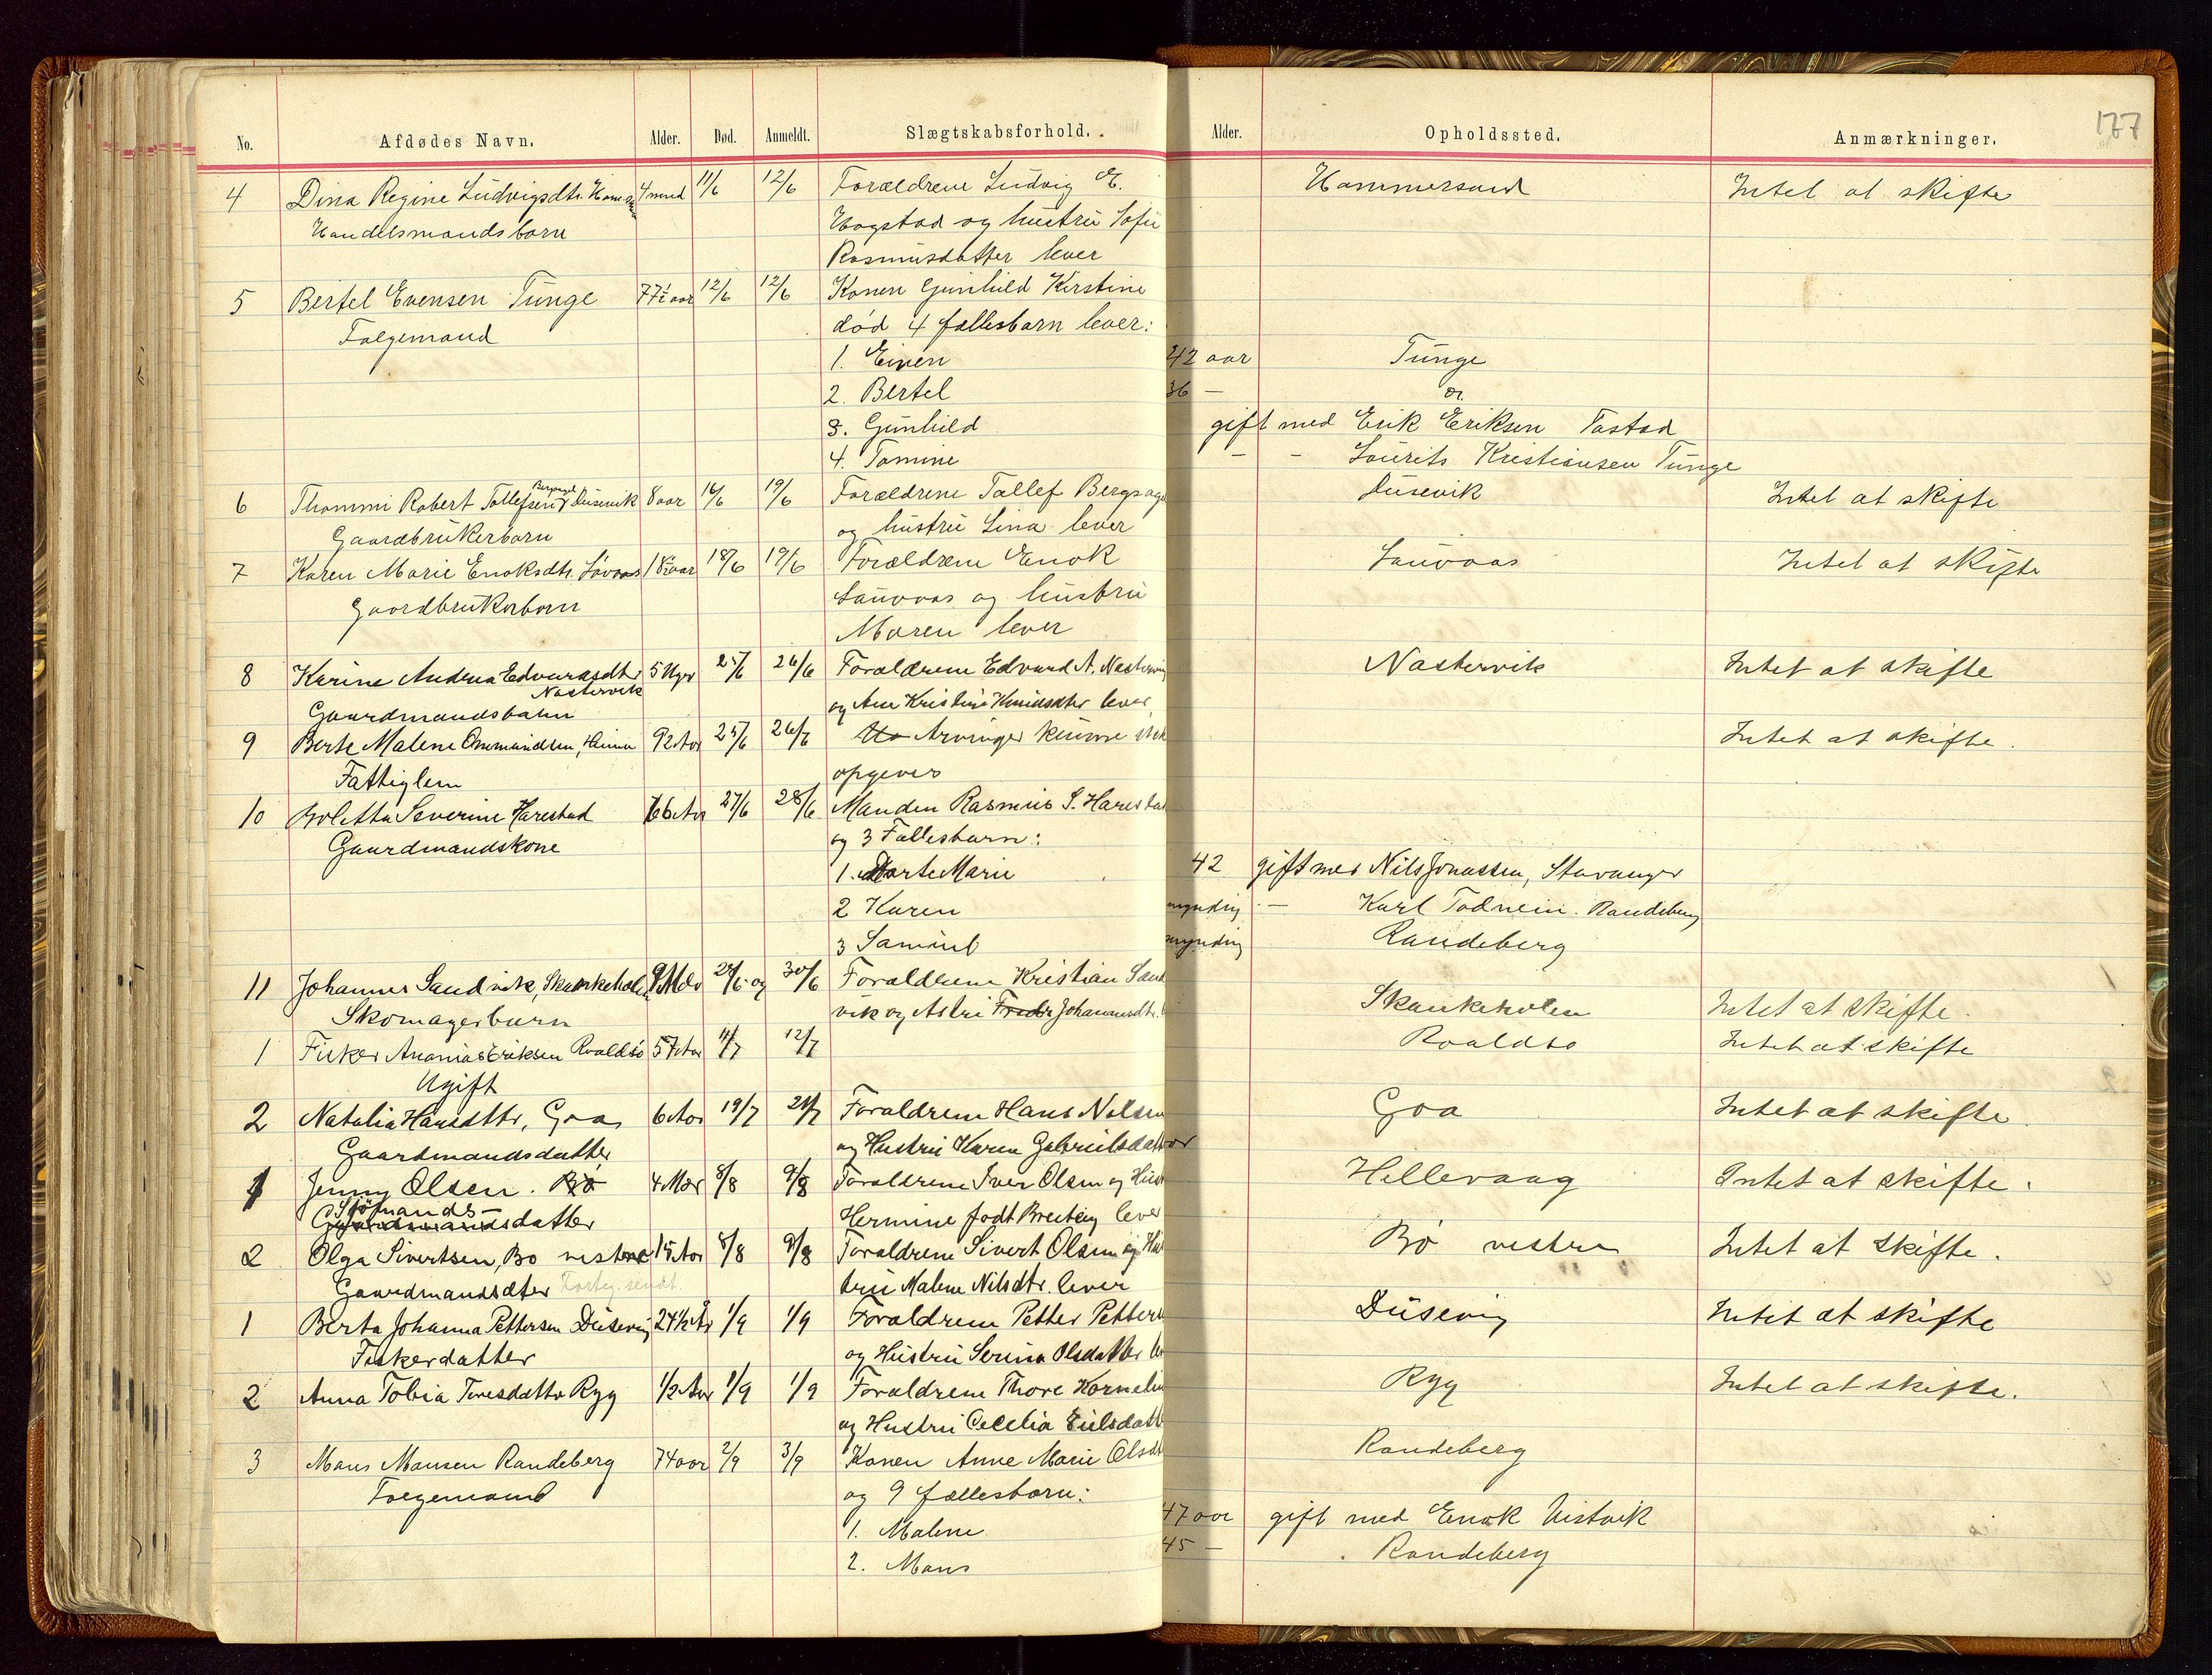 177
No. Afdødes Navn. Alder. Død. Anmeldt. Slægtskabsforhold. Alder. Opholdssted. Anmærkninger.
4 Dina Regine Ludvigsdtr. 4 mnd 11/6 12/6 Forældrene Ludvig E. Hammersand Intet at skifte
Handelsmandsbarn Hogstad og hustru Sofie
Rasmusdatter lever
5 Bertel Evensen Tunge 77½ aar 12/6 12/6 Konen Gunhild Kirstine
Folgemand død 4 fællesbarn lever:
1. Einen 42 aar Tunge
2. Bertel 36 —
3. Gunhild gift med Erik Eriksen Tastad
4. Tomine - - Lourits Kristiansen Tunge
6 Thommi Robert Tollefsen Dusevik 8 aar 16/6 19/6 Forældrene Tollef Bergsage Dusevik Intet at skifte
Gaardbrukerbarn og hustru Lina lever
7 Karen Marie Enoksdtr. 18½ aar 18/6 19/6 Forældrene Enok Lauvaas Intet at skifte
Gaardbrukerbarn Lauvaas og hustru
Maren lever
8 Karine Andrea Edvardsdtr 5 Uger 25/6 26/6 Forældrene Edvard A. Nastervig Nastervik Intet at skifte
Nastervik
Gaardmandsbahn og Ane Kristine lever
9 Berte Malene Ommundsen, 92 Aar 25/6 26/6 Arvinger kunne ikk Intet at skifte.
Fattiglem opgives
10 Bolette Severine Harestad 66 Aar 27/6 28/6 Manden Rasmus S. Harestad
Gaardmandskone og 3 Fællesbarn:
1. Marte Marie 42 gift med Nils Jonassen, Stavanger
2 Karen myndig — Karl Todnem. Randeberg
3 Samuel myndig Randeberg
11 Johannes Sandvik, Skankeholen 9 Mdr 29/6 30/6 Forældrene Kristian Sand
Skomagerbarn vik og Astri Johannesdtr. Skankeholen Intet at skifte.
1 Fisker Ananias Eriksen Roaldsø 57 Aar 11/7 12/7 Roaldsø Intet at skifte
Ugift
2 Natalia Hansdttr, Goa 6 Aar 19/7 21/7 Forældrene Hans Nilsen Goa Intet at skifte.
Gaardmandsdatter og Hustru Karen Gabrielsdatter
1 Jenny Olsen. Bø 4 Mdr 8/8 9/8 Forældrene Iver Olsen og Hust Hillevaag Intet at skifte.
Sjømands-
Gaardmandsdatter Hermine født lever
2 Olga Sivertsen, Bø vestre 15 Aar 8/8 9/8 Forældrene Sivert Olsen og Hus Bø vestre Intet at skifte.
Gaardmandsdtter tru Malene Nilsdtr. lever
1 Berta Johanna Pettersen Dusevig 24½ År 1/9 1/9 Forældrene Petter Petters Dusevig Intet at skifte
Fiskerdatter og Hustru Serina Olsdatter
2 Anna Tobia Toresdattr Ryg 1/2 Aar 1/9 1/9 Forældrene Thore Korneliu Ryg Intet at skifte.
og Hustru Cecelia Eielsdatt
3 Mons Monsen Randeberg 74 aar 2/9 3/9 Konen Anne Marie Olsdt Randeberg
Folgemand og 9 fællesbarn:
1. Malene 47 aar gift med Enok Vistvik
2. Mons 45 — Randeberg